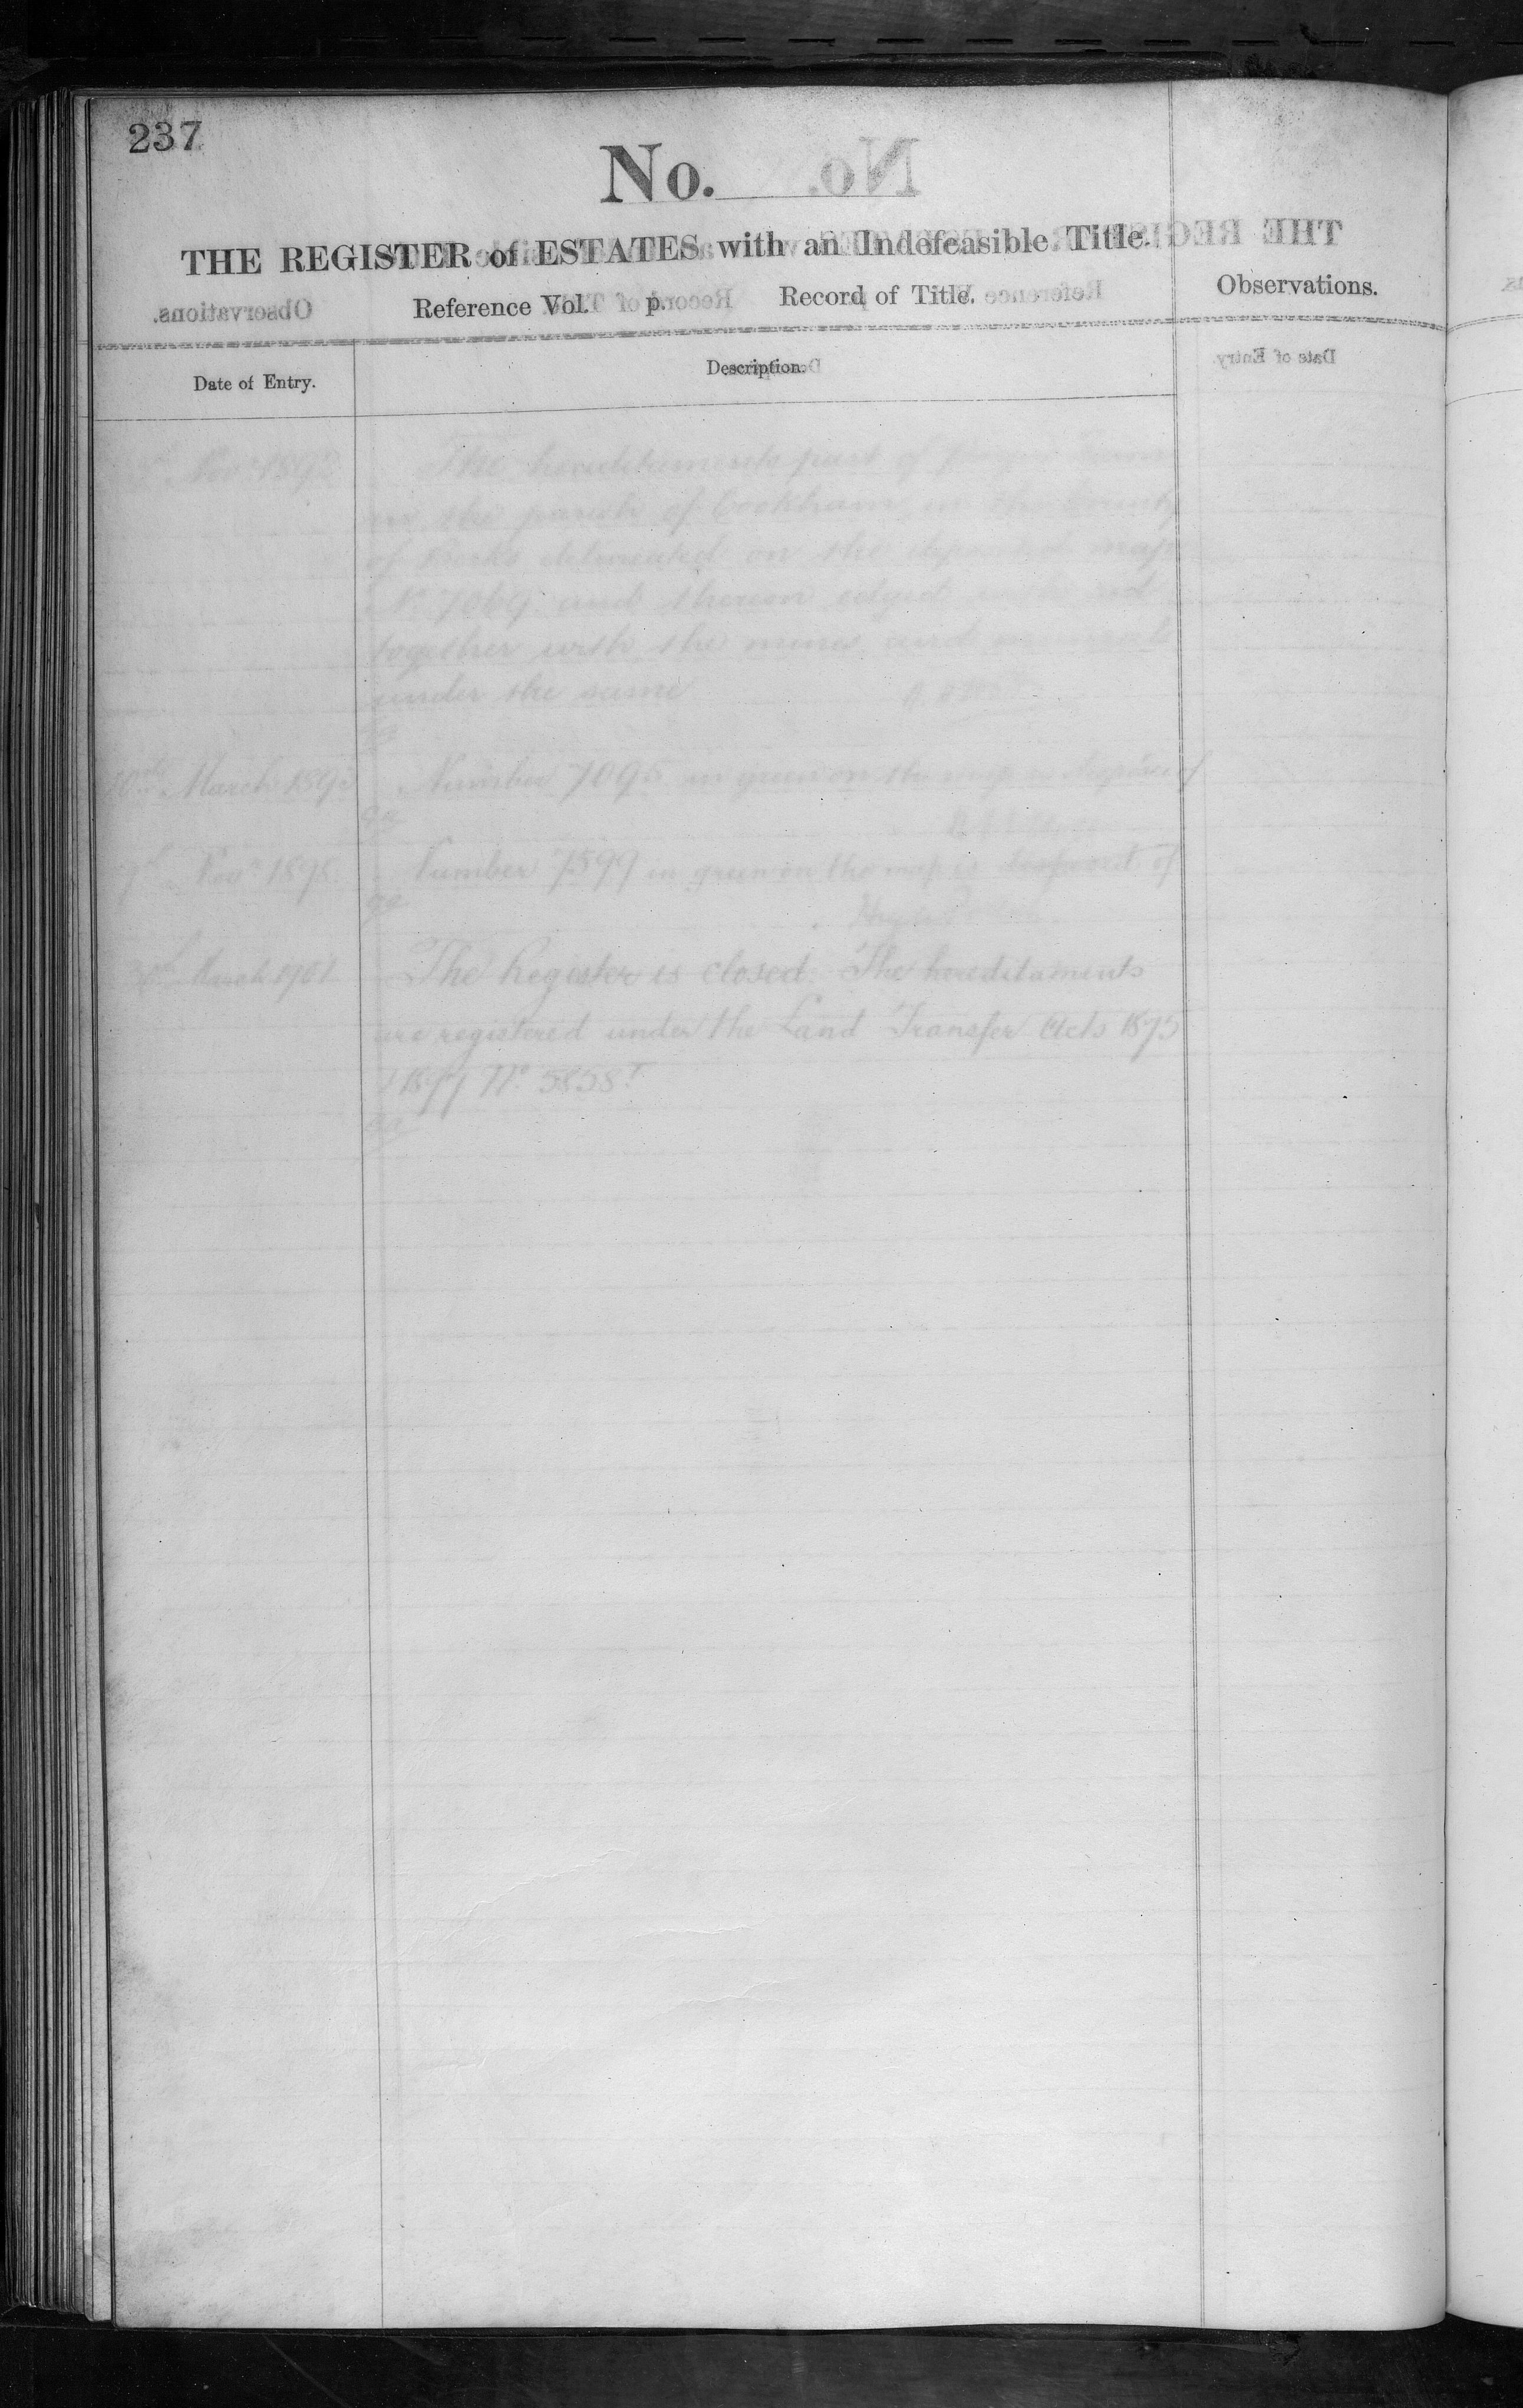 237
No.
THE REGISTER of ESTATES with an Indefeasible Title.
Reference Vol. p. Record of Title.
Observations.
Date of Entry.
Description.
Nov 1892 The hereditaments part of
in the parish of Cookham in the County
of Berks delineated on the deposited map
No. 7069 and thereon edged with red
together with the mines and minerals
under the same
10th March 1892 Number 7095 in green on the map is disposed of
Nov 1898 Number 7599 in green on the map is disposed of
March 1901 The Register is closed. The hereditaments
are registered under the Land Transfer Acts 1875
1897 No. 5858